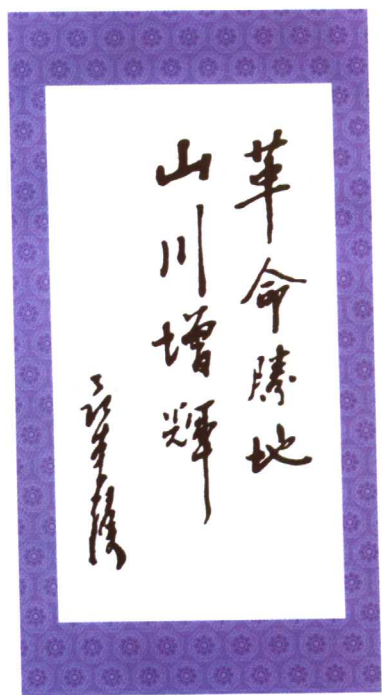 革命勝地
山川增輝